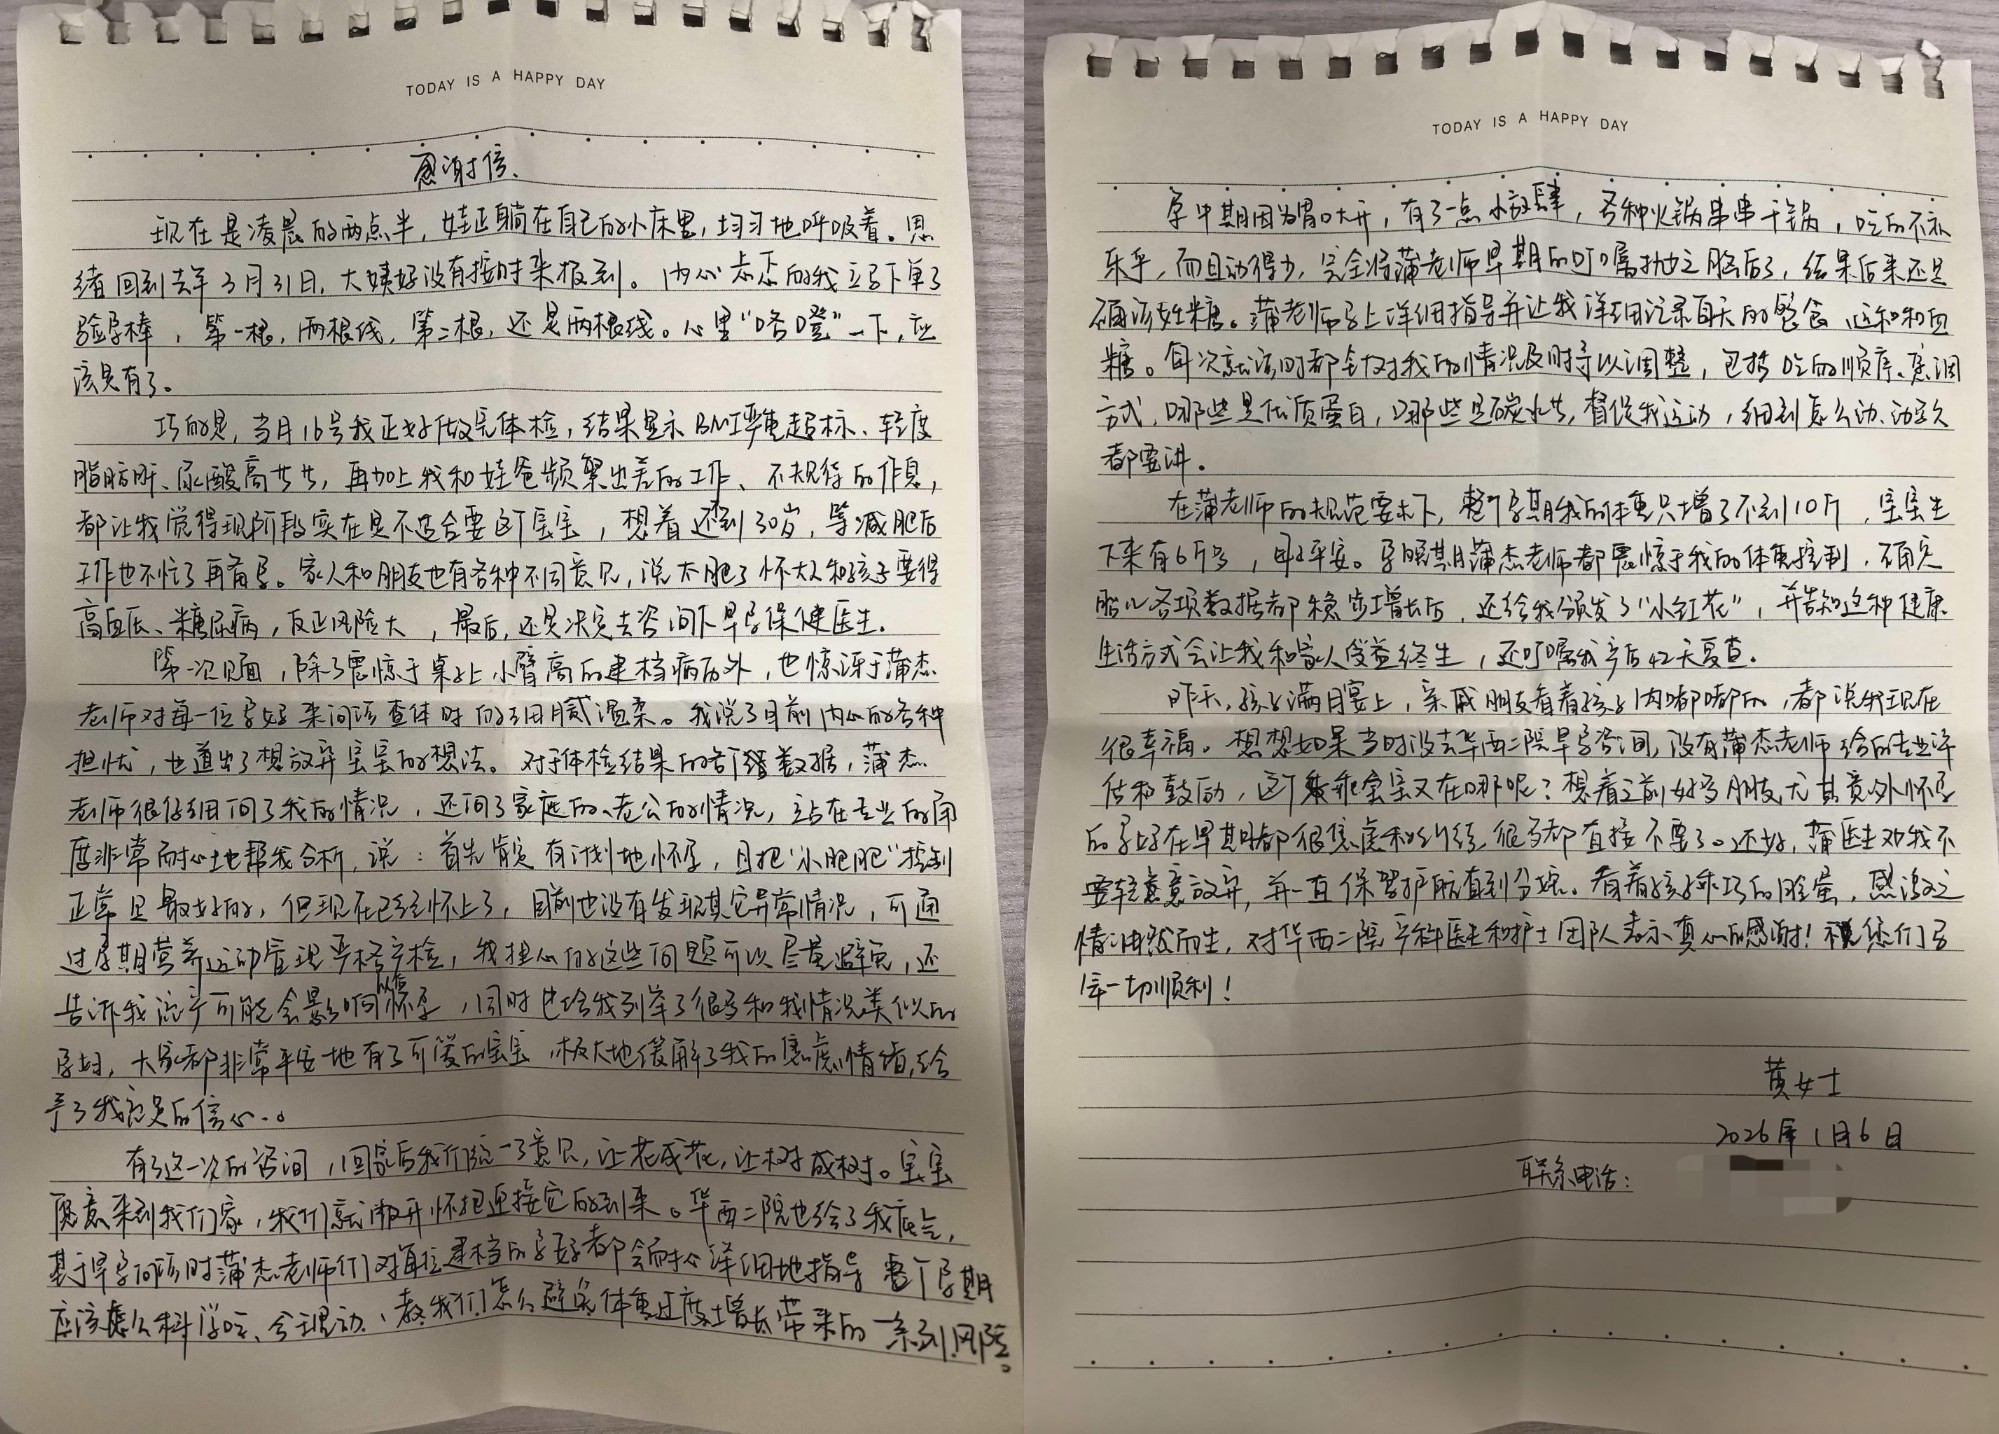 TODAY IS A HAPPY DAY
感谢信
现在是凌晨的两点半，娃正躺在自己的小床里，均匀地呼吸着。思
绪回到去年3月31日，大姨妈没有按时来报到。内心忐忑的我立马下单了
验孕棒，第一根，两根线，第二根，还是两根线。心里“咯噔”一下，应
该是有了。
巧的是，当月16号我正好做完体检，结果显示BMI严重超标、轻度
脂肪肝、尿酸高等等，再加上我和娃爸频繁出差的工作、不规律的作息，
都让我觉得现阶段实在是不适合要这个宝宝，想着还不到30岁，等减肥后
工作也不忙了再备孕。家人和朋友也有各种不同意见，说太胖了怀大人和孩子要得
高血压、糖尿病，反正风险大，最后，还是决定去咨询下早孕保健医生。
第一次见面，除了震惊于桌子上小臂高的建档病历外，也惊讶于蒲杰
老师对每一位孕妇来问诊查体时的细腻温柔。我说了目前内心的各种
担忧，也道出了想放弃宝宝的想法。对于体检结果的各项数据，蒲杰
老师很仔细问了我的情况，还问了家庭的、老公的情况，站在专业的角
度非常耐心地帮我分析，说：首先肯定有计划地怀孕，且把“小肥肥”控制
正常是最好的，但现在已经怀上了，目前也没有发现其它异常情况，可通
过孕期营养运动管理严格产检，我担心的这些问题可以尽量避免，还
告诉我流产可能会影响以后怀孕，同时也给我列举了很多和我情况类似的
孕妇，大家都非常平安地有了可爱的宝宝，极大地缓解了我的焦虑情绪，给
予了我充足的信心..。
有了这一次的咨询，回家后我们统一了意见，让花成花，让树成树。宝宝
愿意来到我们家，我们就敞开怀抱迎接它的到来。华西二院也给了我底气，
基于早孕问诊时蒲杰老师们对每位建档的孕妇都会耐心详细地指导整个孕期
应该怎么科学吃、合理动、教我们怎么避免体重过度增长带来的一系列风险。
TODAY IS A HAPPY DAY
孕中期因为胃口大开，有了一点小放肆，各种火锅串串干锅，吃的不亦
乐乎，而且动得少，完全将蒲老师早期的叮嘱抛之脑后了，结果后来还是
确诊妊糖。蒲老师马上详细指导并让我详细记录每天的餐食、运动和血
糖。每次就诊时都会针对我的情况及时予以调整，包括吃的顺序、烹调
方式，哪些是优质蛋白，哪些是碳水等，督促我运动，细到怎么动、动多久
都要讲。
在蒲老师的规范要求下，整个孕期我的体重只增了不到10斤，宝宝生
下来有6斤多，母子平安。孕晚期蒲杰老师都震惊于我的体重控制，确定
胎儿各项数据都稳步增长后，还给我颁发了“小红花”，并告知这种健康
生活方式会让我和家人受益终生，还叮嘱我产后42天复查。
昨天，孩子满月宴上，亲戚朋友看着孩子肉嘟嘟的，都说我现在
很幸福。想想如果当时没去华西二院早孕咨询，没有蒲杰老师给的专业评
估和鼓励，这个乖乖宝宝又在哪呢？想着之前好多朋友尤其意外怀孕
的孕妇在早期都很焦虑和纠结，很多都直接不要了。还好，蒲医生劝我不
要轻意放弃，并一直保驾护航直到分娩。看着孩子乖巧的脸蛋，感激之
情油然而生，对华西二院产科医生和护士团队表示真心的感谢！祝您们马
年一切顺利！
黄女士
2026年1月6日
联系电话：